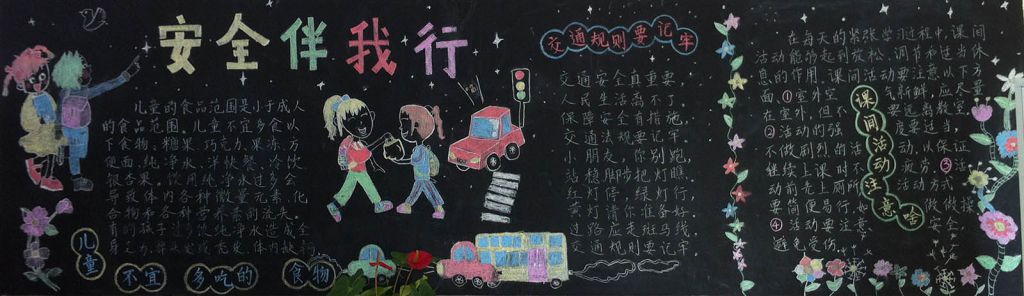 安全伴我行
儿童的食品范围是小于成人
的食品范围。儿童不宜多食以
下食物，糖果、巧克力、果冻、方
便面、纯净水、洋快餐、冷饮
儿童
不宜
多吃的
食物
交通规则要记牢
交通安全真重要，
人民生活离不了。
保障安全有措施，
交通法规要记牢
小朋友，你别跑，
站稳脚步把灯瞧，
红灯停，绿灯行，
黄灯请你准备好
过路应走斑马线，
交通规则要记牢
在每天的紧张学习过程中，课间
活动能够起到放松、调节和适当休
息的作用。课间活动要注意以下方
面，①室外空气新鲜，应尽量
在室外，但不要远离教室，
②活动的强度要适当，
不做剧烈的活动，以保证
继续上课时
③活动方式
要简便易行，如做做操
④活动要注意安全
避免受伤。
课间活动注意啥